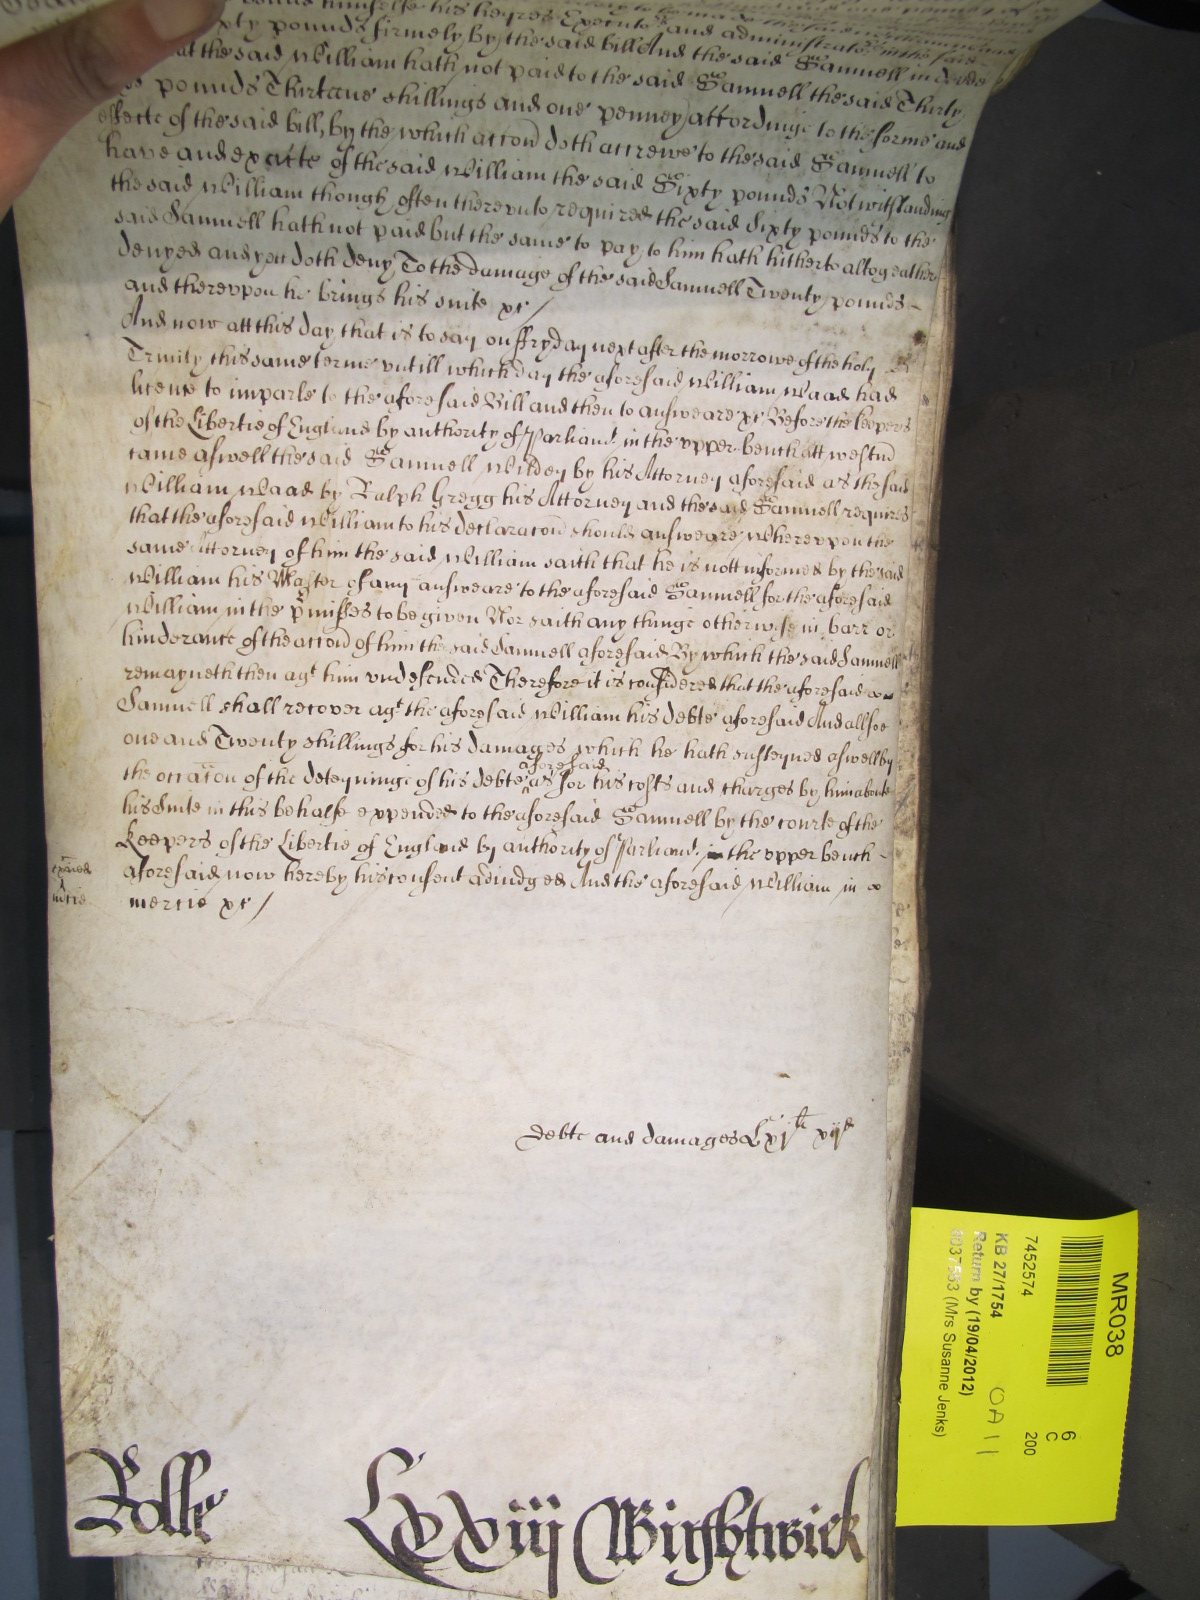 himselfe his heyres Executors and administrators in the said
sixty pounds firmely by the said bill And the said Samuell in deede
that the said William hath not paid to the said Samuell the said Thirty
pounds Thirteene shillings and one penney accordinge to the forme and
effecte of the said bill, by the which accon doth accrewe to the said Samuell to
have and exacte of the said William the said Sixty pounds Notwithstanding
the said William though often therevnto required the said Sixty pounds to the
said Samuell hath not paid but the same to pay to him hath hitherto altogeather
denyed and yett doth deny To the damage of the said Samuell Twenty pounds
and therevpon he brings his suite &c /
And now att this day that is to say on ffryday next after the morrowe of the holy
Trinity this same terme vntill which day the aforesaid William Waad had
licence to imparle to the aforesaid Bill and then to answeare &c Before the keepers
of the Libertie of England by authority of Parliamt in the vpper bench att westm
came aswell the said Samuell Wilden by his Attorney aforesaid as the said
William Waad by Ralph Gregg his Attorney and the said Samuell requires
that the aforesaid William to his declaracon should answeare Wherevpon the
same Attorney of him the said William saith that he is nott informed by the said
William his Master of any answeare to the aforesaid Samuell for the aforesaid
William in the pmisses to be given Nor saith any thinge otherwise in barr or
hinderance of the accon of him the said Samuell aforesaid By which the said Samuell
remayneth then agt him vndefended Therefore it is considered that the aforesaid
Samuell shall recover agt the aforesaid William his debte aforesaid And allsoe
one and Twenty shillings for his damages which he hath susteyned aswell by
the occasion of the deteyninge of his debte aforesaid as for his costs and charges by him aboute
his Suite in this behalfe expended to the aforesaid Samuell by the courte of the
Keepers of the Libertie of England by authority of Parliamt in the vpper bench
aforesaid now hereby his consent adiudged And the aforesaid William in
mercie &c /
mcie
debte and damages Lxjli xijd
Rolle Lxviij Wightwick
MR038
7452574
6
C
200
KB 27/1754
Return by (19/04/2012)
(Mrs Susanne Jenks)
OA11